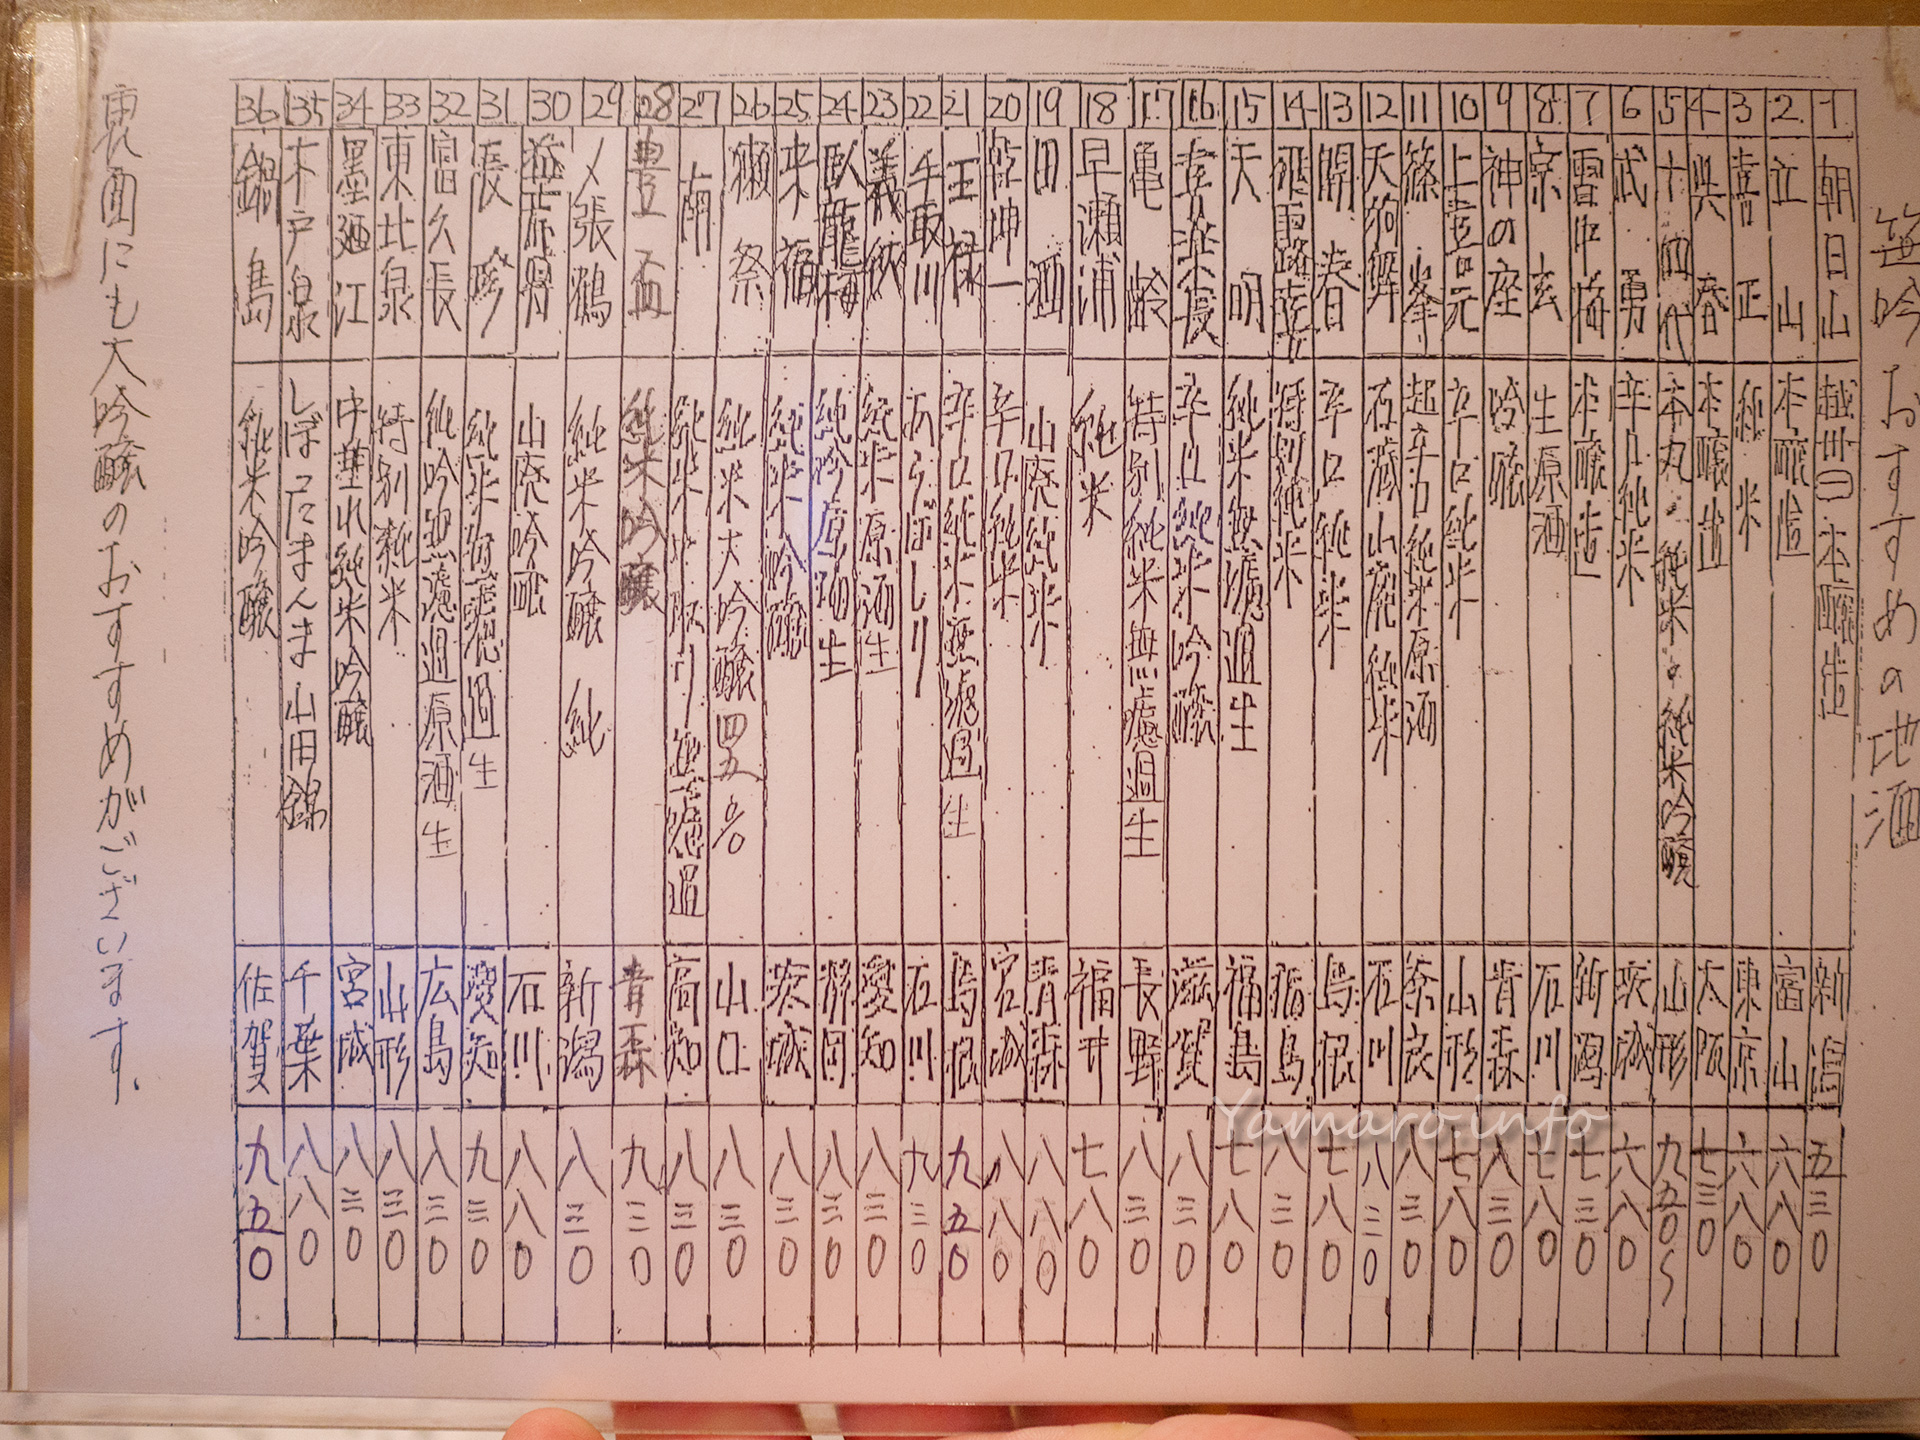 笹吟おすすめの地酒
1 朝日山 越州 本醸造 新潟 五三0
2 立山 本醸造 富山 六八0
3 喜正 純米 東京 六八0
4 呉春 本醸造 大阪 七三0
5 十四代 本丸 純米 純米吟醸 山形 九五0〜
6 武勇 辛口純米 茨城 六八0
7 雪中梅 本醸造 新潟 七三0
8 宗玄 生原酒 石川 七八0
9 神の座 吟醸 青森 八三0
10 上喜元 辛口純米 山形 七八0
11 篠峯 超辛口純米原酒 奈良 八三0
12 天狗舞 石蔵 山廃純米 石川 八三0
13 開春 辛口純米 島根 七八0
14 飛露喜 特別純米 福島 八三0
15 天明 純米無濾過生 福島 七八0
16 喜楽長 辛口純米吟醸 滋賀 八三0
17 亀齢 特別純米無濾過生 長野 八三0
18 早瀬浦 純米 福井 七八0
19 田酒 山廃純米 青森 八八0
20 乾坤一 辛口純米 宮城 八八0
21 王祿 辛口純米無濾過生 島根 九五0
22 手取川 あらばしり 石川 九三0
23 義侠 純米原酒生 愛知 八三0
24 臥龍梅 純吟原酒生 静岡 八三0
25 来福 純米吟醸 茨城 八三0
26 獺祭 純米大吟醸 四五 山口 八三0
27 南 純米中取り無濾過 高知 八三0
28 豊盃 純米吟醸 青森 九三0
29 〆張鶴 純米吟醸 純 新潟 八三0
30 遊穂 山廃吟醸 石川 八八0
31 長珍 純米無濾過生 愛知 九三0
32 富久長 純吟無濾過原酒生 広島 八三0
33 東北泉 特別純米 山形 八三0
34 墨廼江 中垂れ純米吟醸 宮城 八三0
35 木戸泉 しぼったまんま 山田錦 千葉 八八0
36 鍋島 純米吟醸 佐賀 九五0
裏面にも大吟醸のおすすめがございます。
Yamaro.info